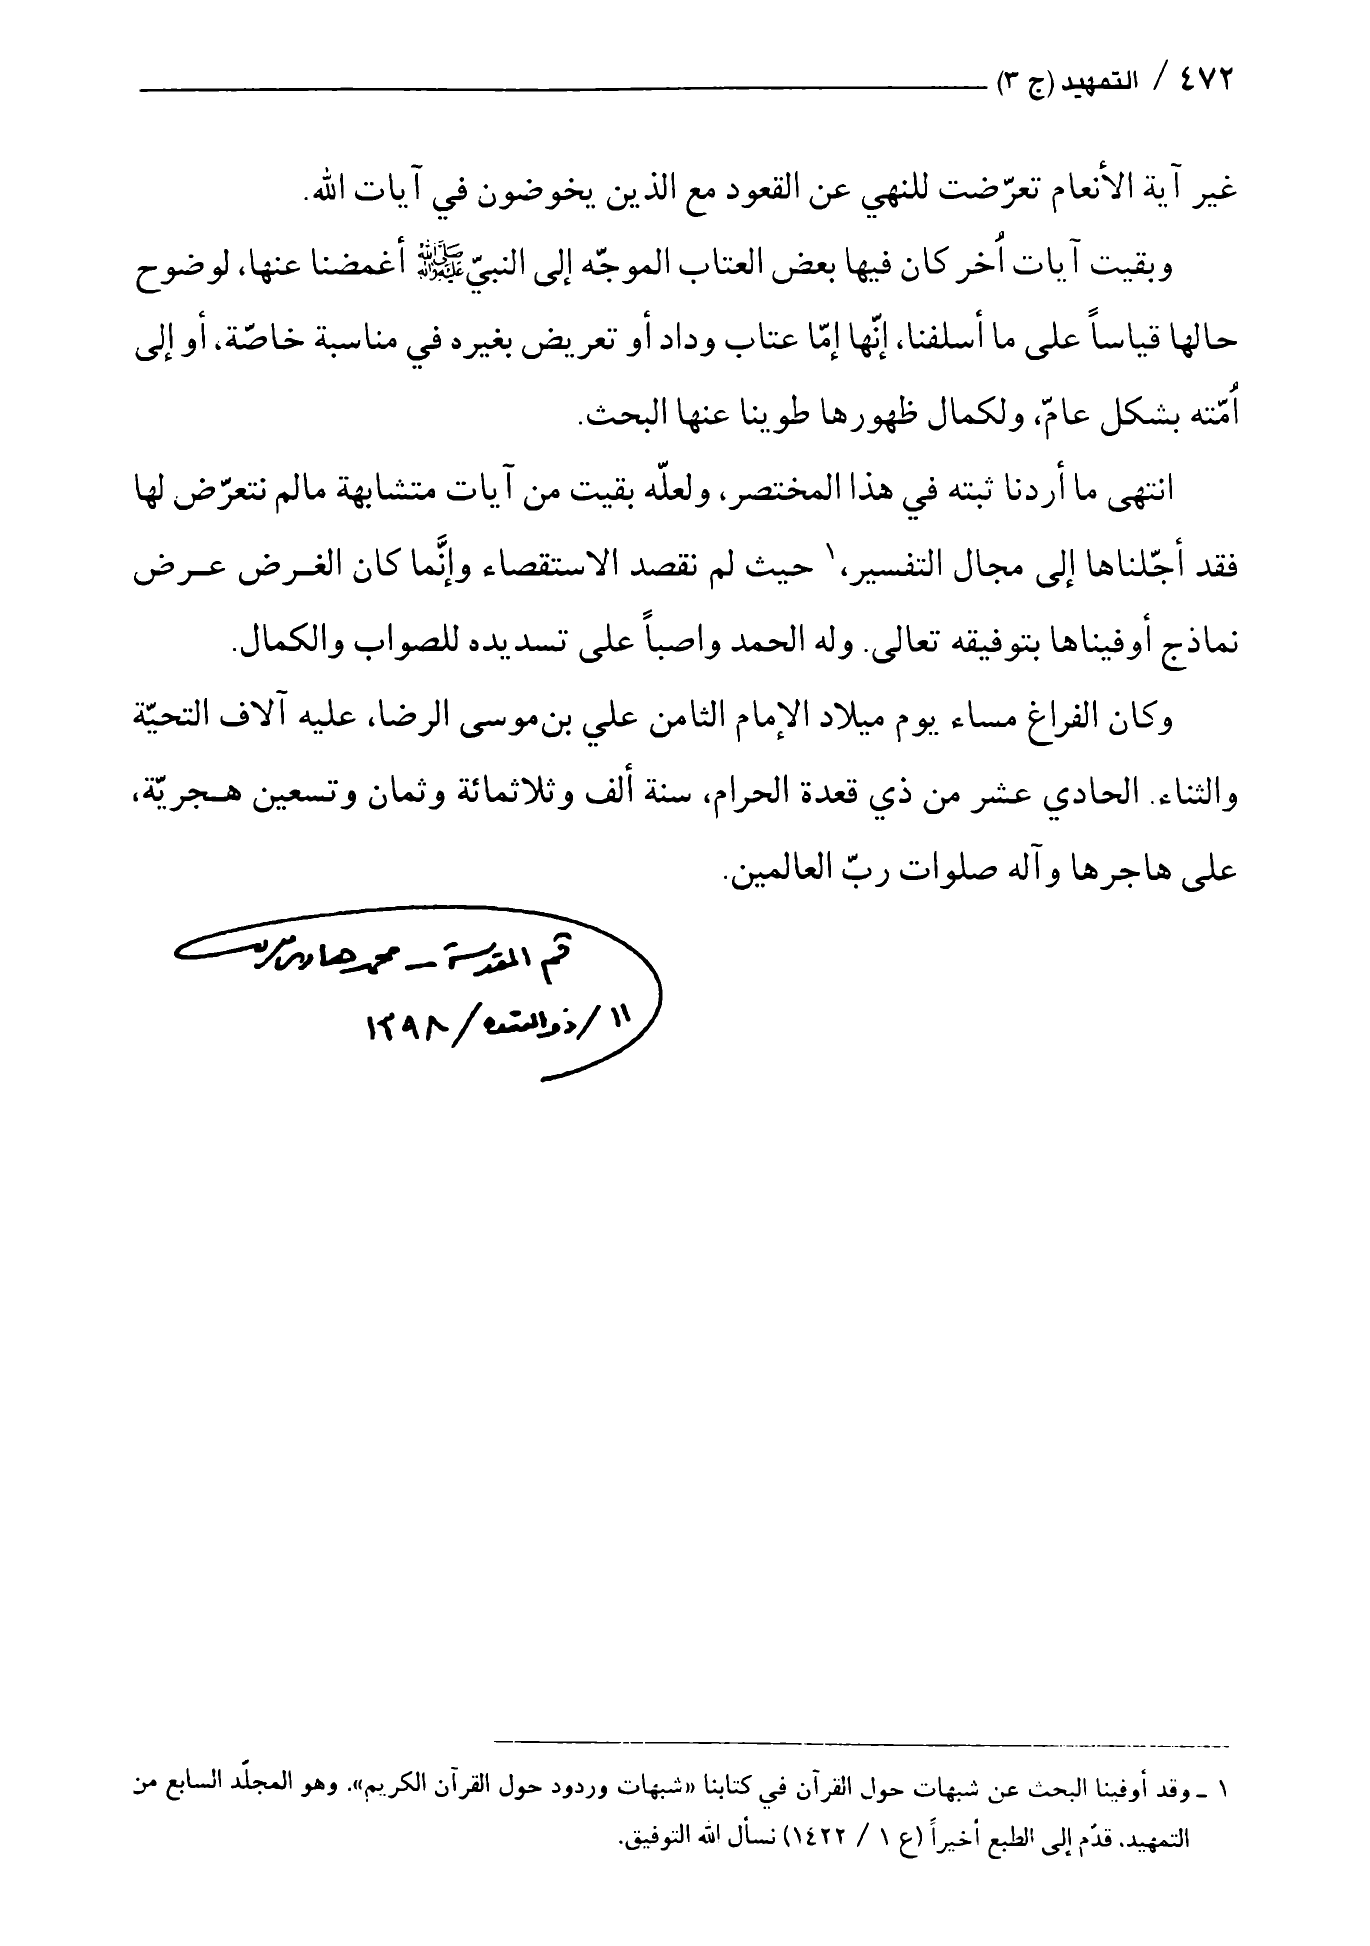 ٤٧٢ / التمهيد (ج ٣)
غير آية الأنعام تعرّضت للنهي عن القعود مع الذين يخوضون في آيات الله.
وبقيت آيات اُخر كان فيها بعض العتاب الموجّه إلى النبيّ ﷺ أغمضنا عنها، لوضوح
حالها قياساً على ما أسلفنا، إنّها إمّا عتاب وداد أو تعريض بغيره في مناسبة خاصّة، أو إلى
اُمّته بشكل عامّ، ولكمال ظهورها طوينا عنها البحث.
انتهى ما أردنا ثبته في هذا المختصر، ولعلّه بقيت من آيات متشابهة مالم نتعرّض لها
فقد أجّلناها إلى مجال التفسير،١ حيث لم نقصد الاستقصاء وإنَّما كان الغرض عرض
نماذج أوفيناها بتوفيقه تعالى. وله الحمد واصباً على تسديده للصواب والكمال.
وكان الفراغ مساء يوم ميلاد الإمام الثامن علي بن‌موسى الرضا، عليه آلاف التحيّة
والثناء. الحادي عشر من ذي قعدة الحرام، سنة ألف وثلاثمائة وثمان وتسعين هجريّة،
على هاجرها وآله صلوات ربّ العالمين.
قم المقدسة ـ محمد هادي معرفت
١١ / ذوالقعده / ١٣٩٨
١ ـ وقد أوفينا البحث عن شبهات حول القرآن في كتابنا «شبهات وردود حول القرآن الكريم». وهو المجلّد السابع من
التمهيد، قدّم إلى الطبع أخيراً (ع ١ / ١٤٢٢) نسأل الله التوفيق.